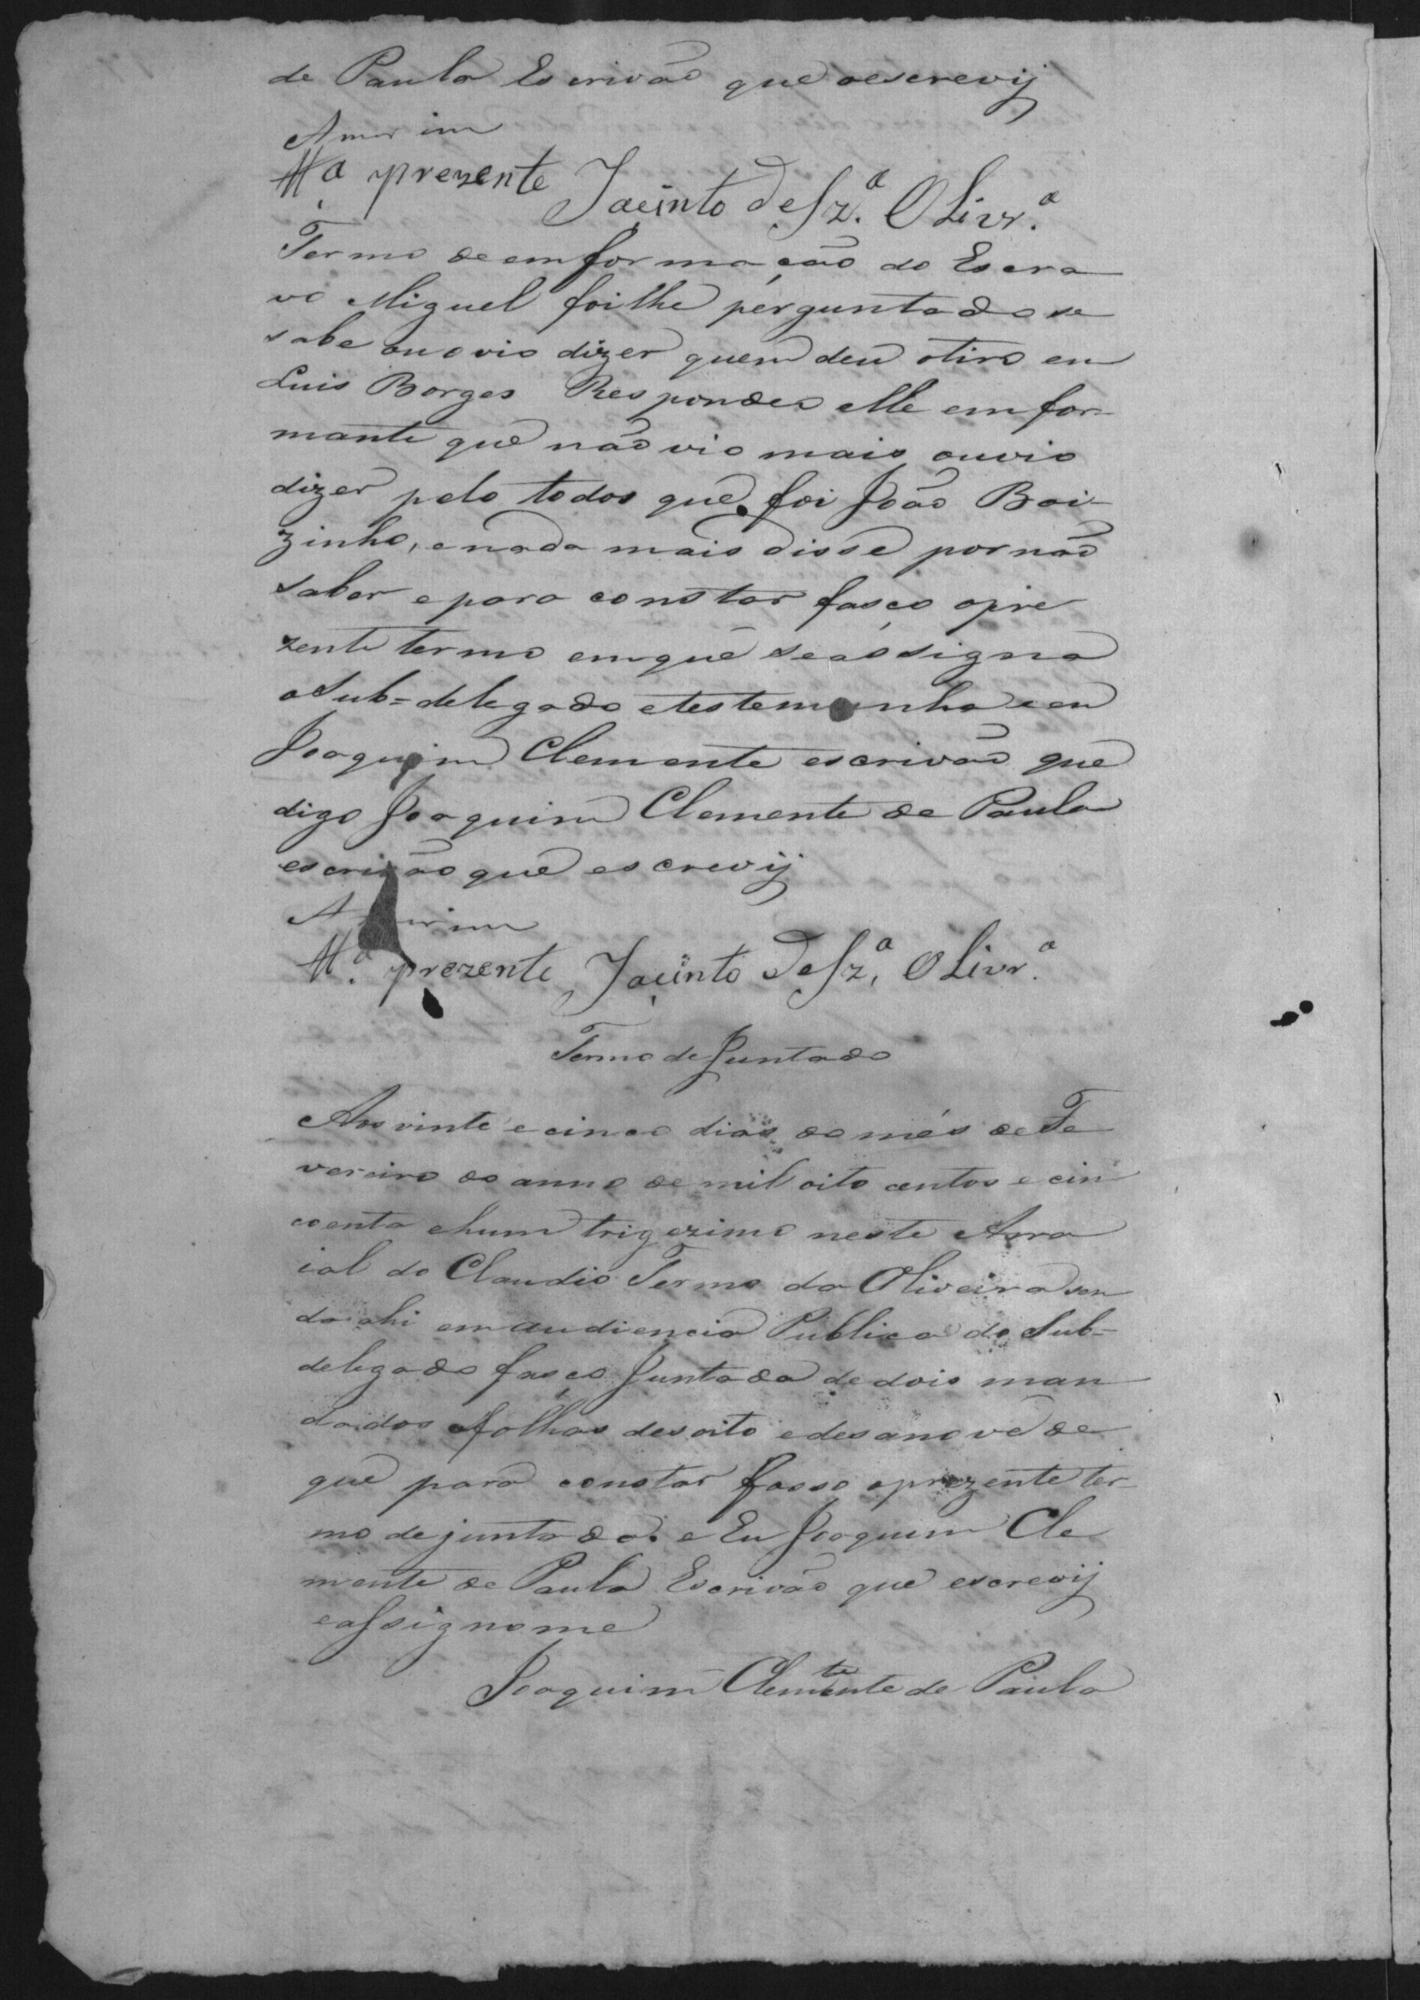 de Paula Escrivão que oescrevij
Amorim
Tt.a prezente Jacinto de Sz.a Olivr.a
Termo de emformação do Escra
vo Miguel foi lhe perguntado se
sabe ou ovio dizer quem deu otiro em
Luis Borges Respondeo elle emfor-
mante que não vio mais ouvio
dizer pelo todos que foi João Boi-
zinho, enada mais disse por não
saber epara constar fasço opre
zente termo emque se assigna
oSub=delegado etestemunha eeu
Joaquim Clemente escrivão que
digo Joaquim Clemente de Paula
escrivão que escrevij
Amorim
Tt.a prezente Jacinto de Sz.a Olivr.a
Termo de Juntada
Aos vinte e cinco dias do mês de Fe
vereiro do anno de mil oito centos e cin
coenta ehum trigezimo neste Arra
ial do Claudio Termo da Oliveira sen
do ahi em audiencia Publica do Sub=
delegado fasço Juntada de dois man
dados afolhas desoito edesanove de
que para constar fasso oprezente ter-
mo de juntada. e Eu Joaquim Cle
mente de Paula Escrivão que escrevij
eassignome
Joaquim Clemente de Paula